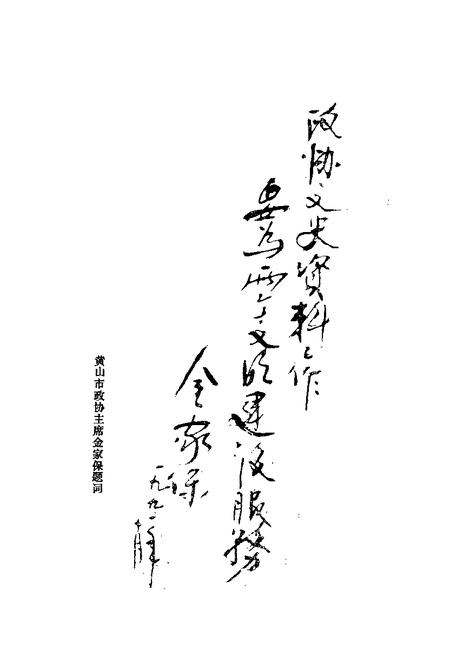 政协文史資料工作
要为两个文明建设服務
金家保
一九九一年
黄山市政协主席金家保题词